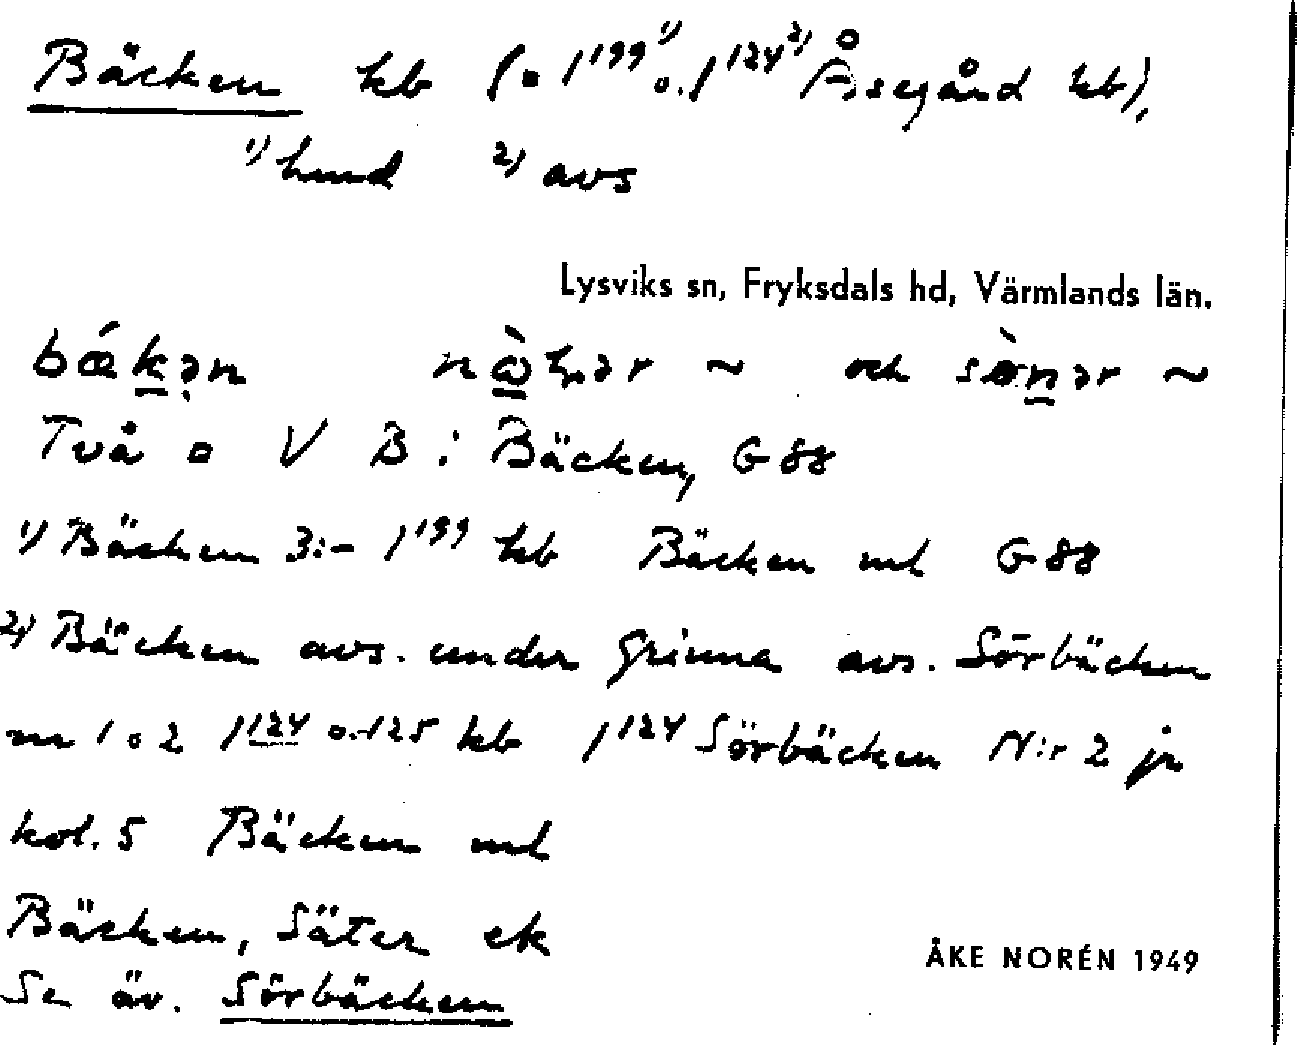 Bäcken kb (▫ 1¹⁹⁹ ¹⁾ o. 1¹²⁴ ²⁾ Åsegård kb),
¹⁾ hmd ²⁾ avs
Lysviks sn, Fryksdals hd, Värmlands län.
bǽk̲ən ~ och ~
Två ▫ V B i Bäcken, G 88
¹⁾ Bäcken 3:- 1¹⁹⁹ kb Bäcken mk G 88
²⁾ Bäcken avs. under Grinna avs. Sörbäcken
m 1 o 2 1¹²⁴ o.-125 kb 1¹²⁴ Sörbäcken N:r 2 jr
kol. 5 Bäcken mk
Bäcken, Säter ek
Se äv. Sörbäcken
ÅKE NORÉN 1949